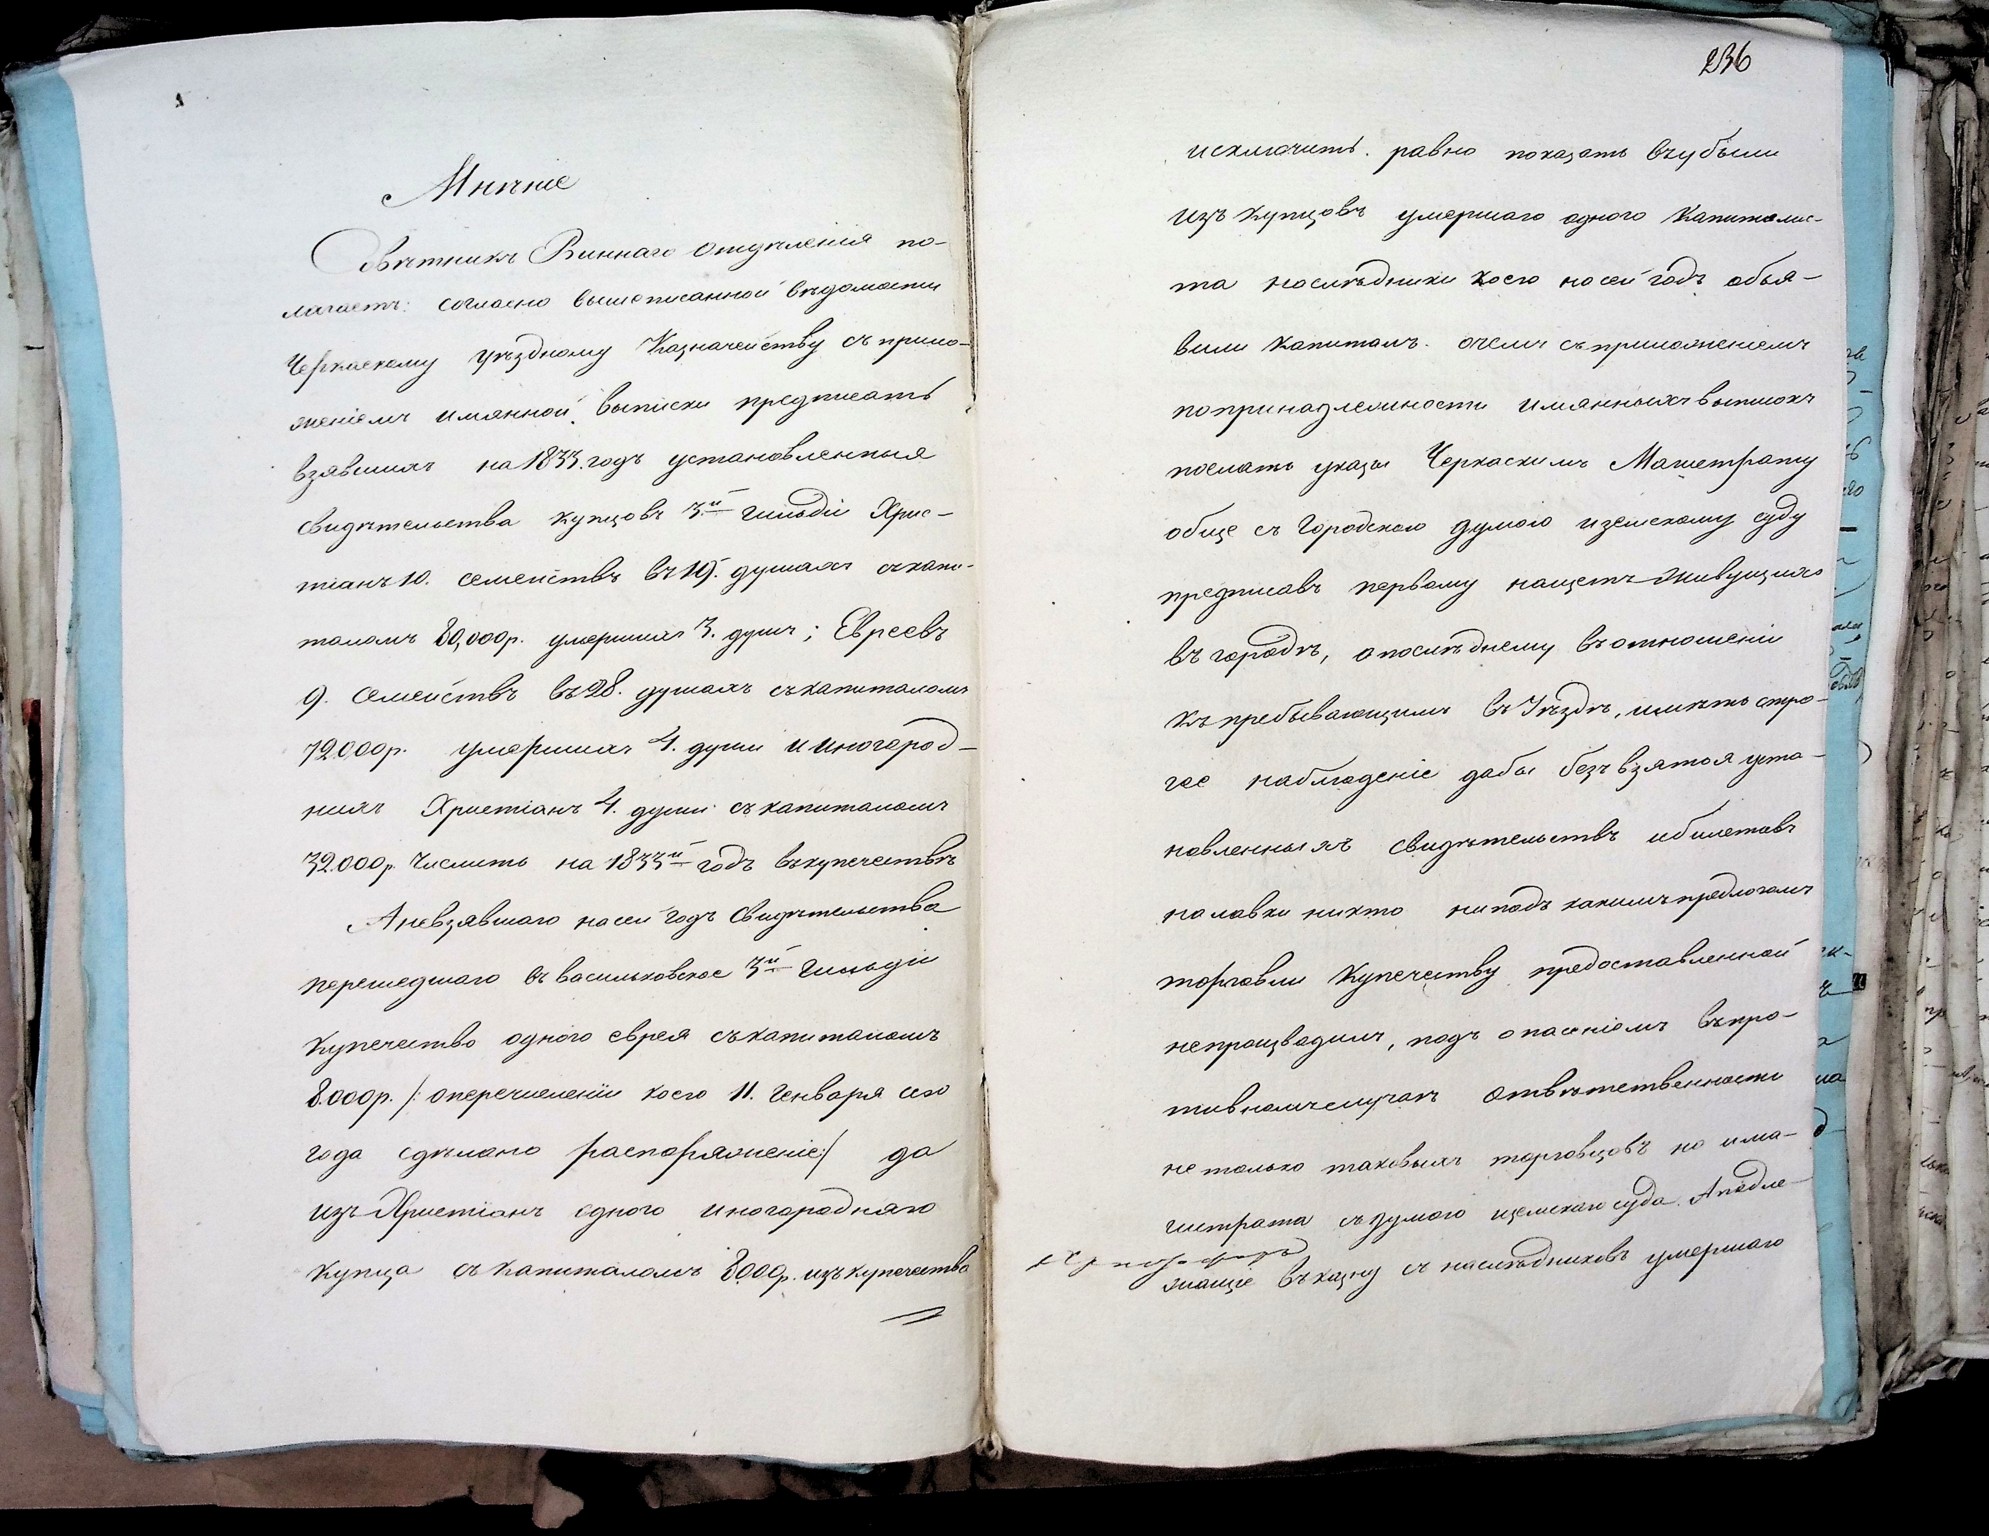 Мнѣніе
Совѣтникъ Виннаго отдѣленія по-
лагаетъ: согласно вышеписанной вѣдомости
Черкаскому уѣздному Казначейству съ прило-
женіемъ имянной выписки предписать
взявшихъ на 1833. годъ установленныя
свидѣтельства купцовъ 3й гильдіи Хрис-
тіанъ 10. семействъ въ 19. душахъ съ капи-
таломъ 80,000р. умершихъ 3. душъ; Евреевъ
9. семействъ въ 28. душахъ съ капиталомъ
72000р. умершихъ 4. души и иногород-
нихъ Христіанъ 4. души съ капиталомъ
32.000р. числить на 1833й годъ въ купечествѣ
А невзявшаго на сей годъ Свидѣтельства
перешедшаго въ васильковское 3й Гильдіи
купечество одного еврея съ капиталомъ
8.000р. /: о перечисленіи коего 11. Генваря сего
года сдѣлано распоряженіе:/ да
изъ Христіанъ одного иногородняго
купца съ капиталомъ 8000р. изъ купечества
236
исключить. равно показать въ убыли
изъ купцовъ умершаго одного капиталис-
та наслѣдники коего на сей годъ объя-
вили капиталъ. о чемъ съ приложеніемъ
по принадлежности имянныхъ выписокъ
послать указы Черкаскимъ Магистрату
обще съ Городскою думою и земскому суду
предписавъ первому на щетъ живущихъ
въ городѣ, а послѣднему въ отношеніи
къ пребывающимъ въ Уѣздѣ, имѣть стро-
гое наблюденіе дабы безъ взятья уста-
новленныхъ свидѣтельствъ и билетовъ
на лавки никто ни подъ какимъ предлогомъ
торговли Купечеству предоставленной
непроизводилъ, подъ опасеніемъ въ про-
тивномъ случаѣ отвѣтственности
не только таковыхъ торговцовъ но и ма-
гистрата съ думою и земскаго суда. А подле-
жащіе въ казну съ наслѣдниковъ умершаго